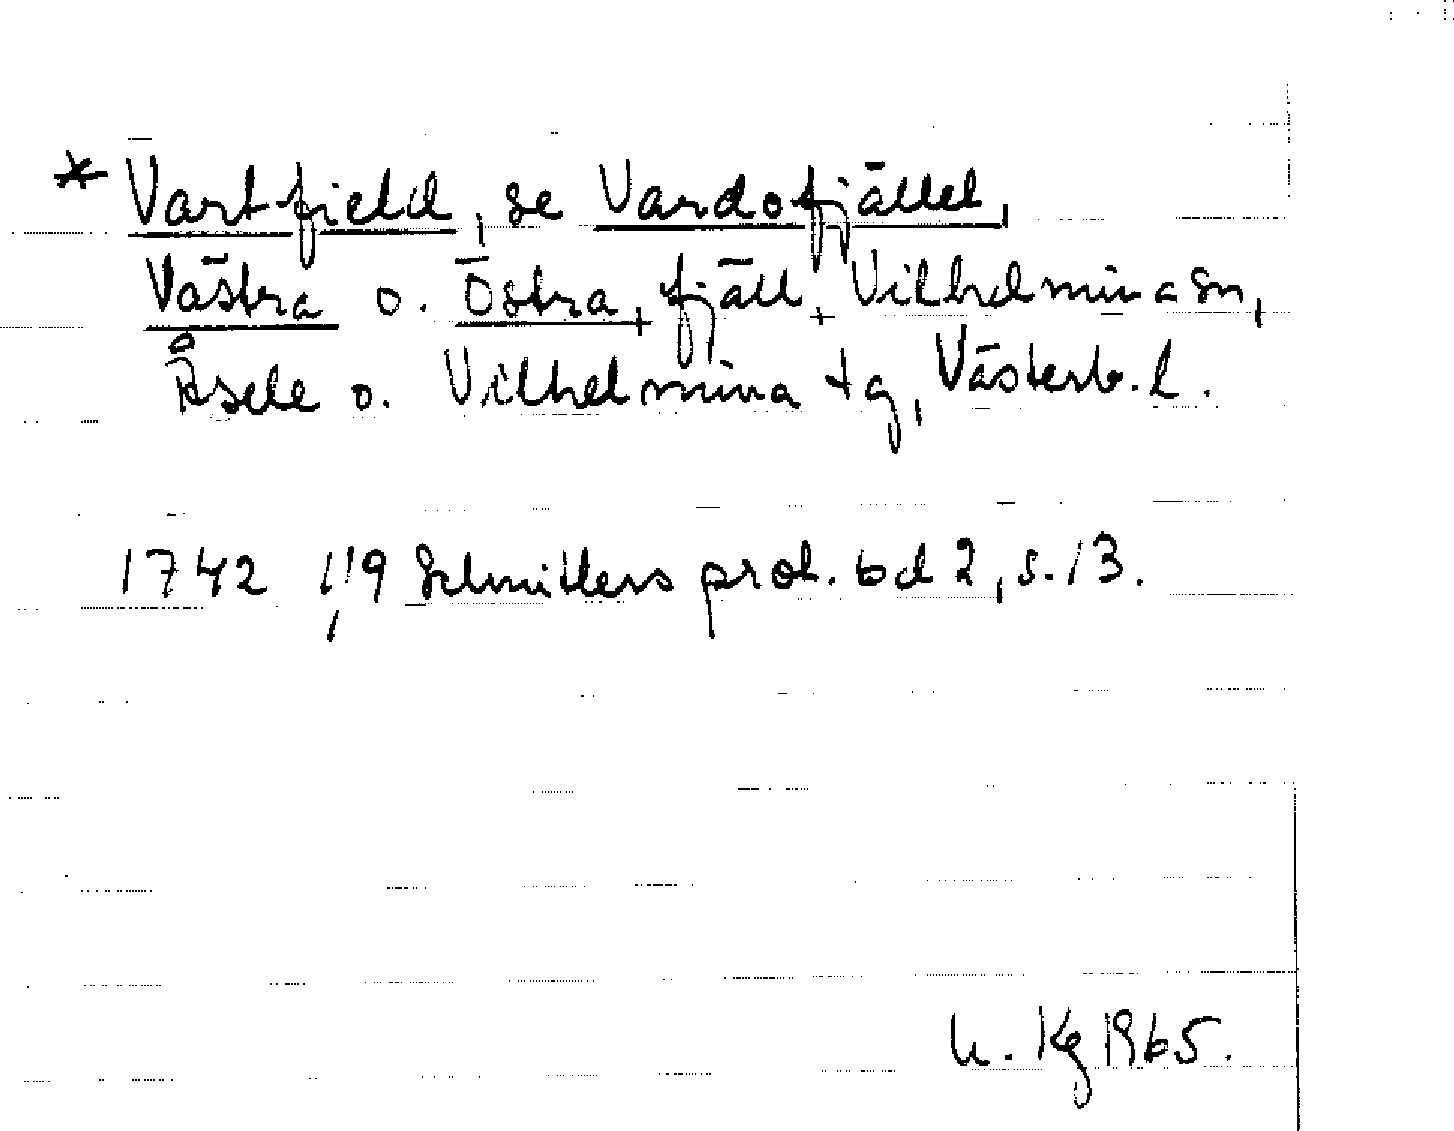 * Vartfield, se Vardofjället,
Västra o. Östra, fjäll, Vilhelmina sn,
Åsele o. Vilhelmina tg, Västerb. l.
1742 1/9 Schnitlers prot. bd 2, s. 13.
U. Kg 1965.